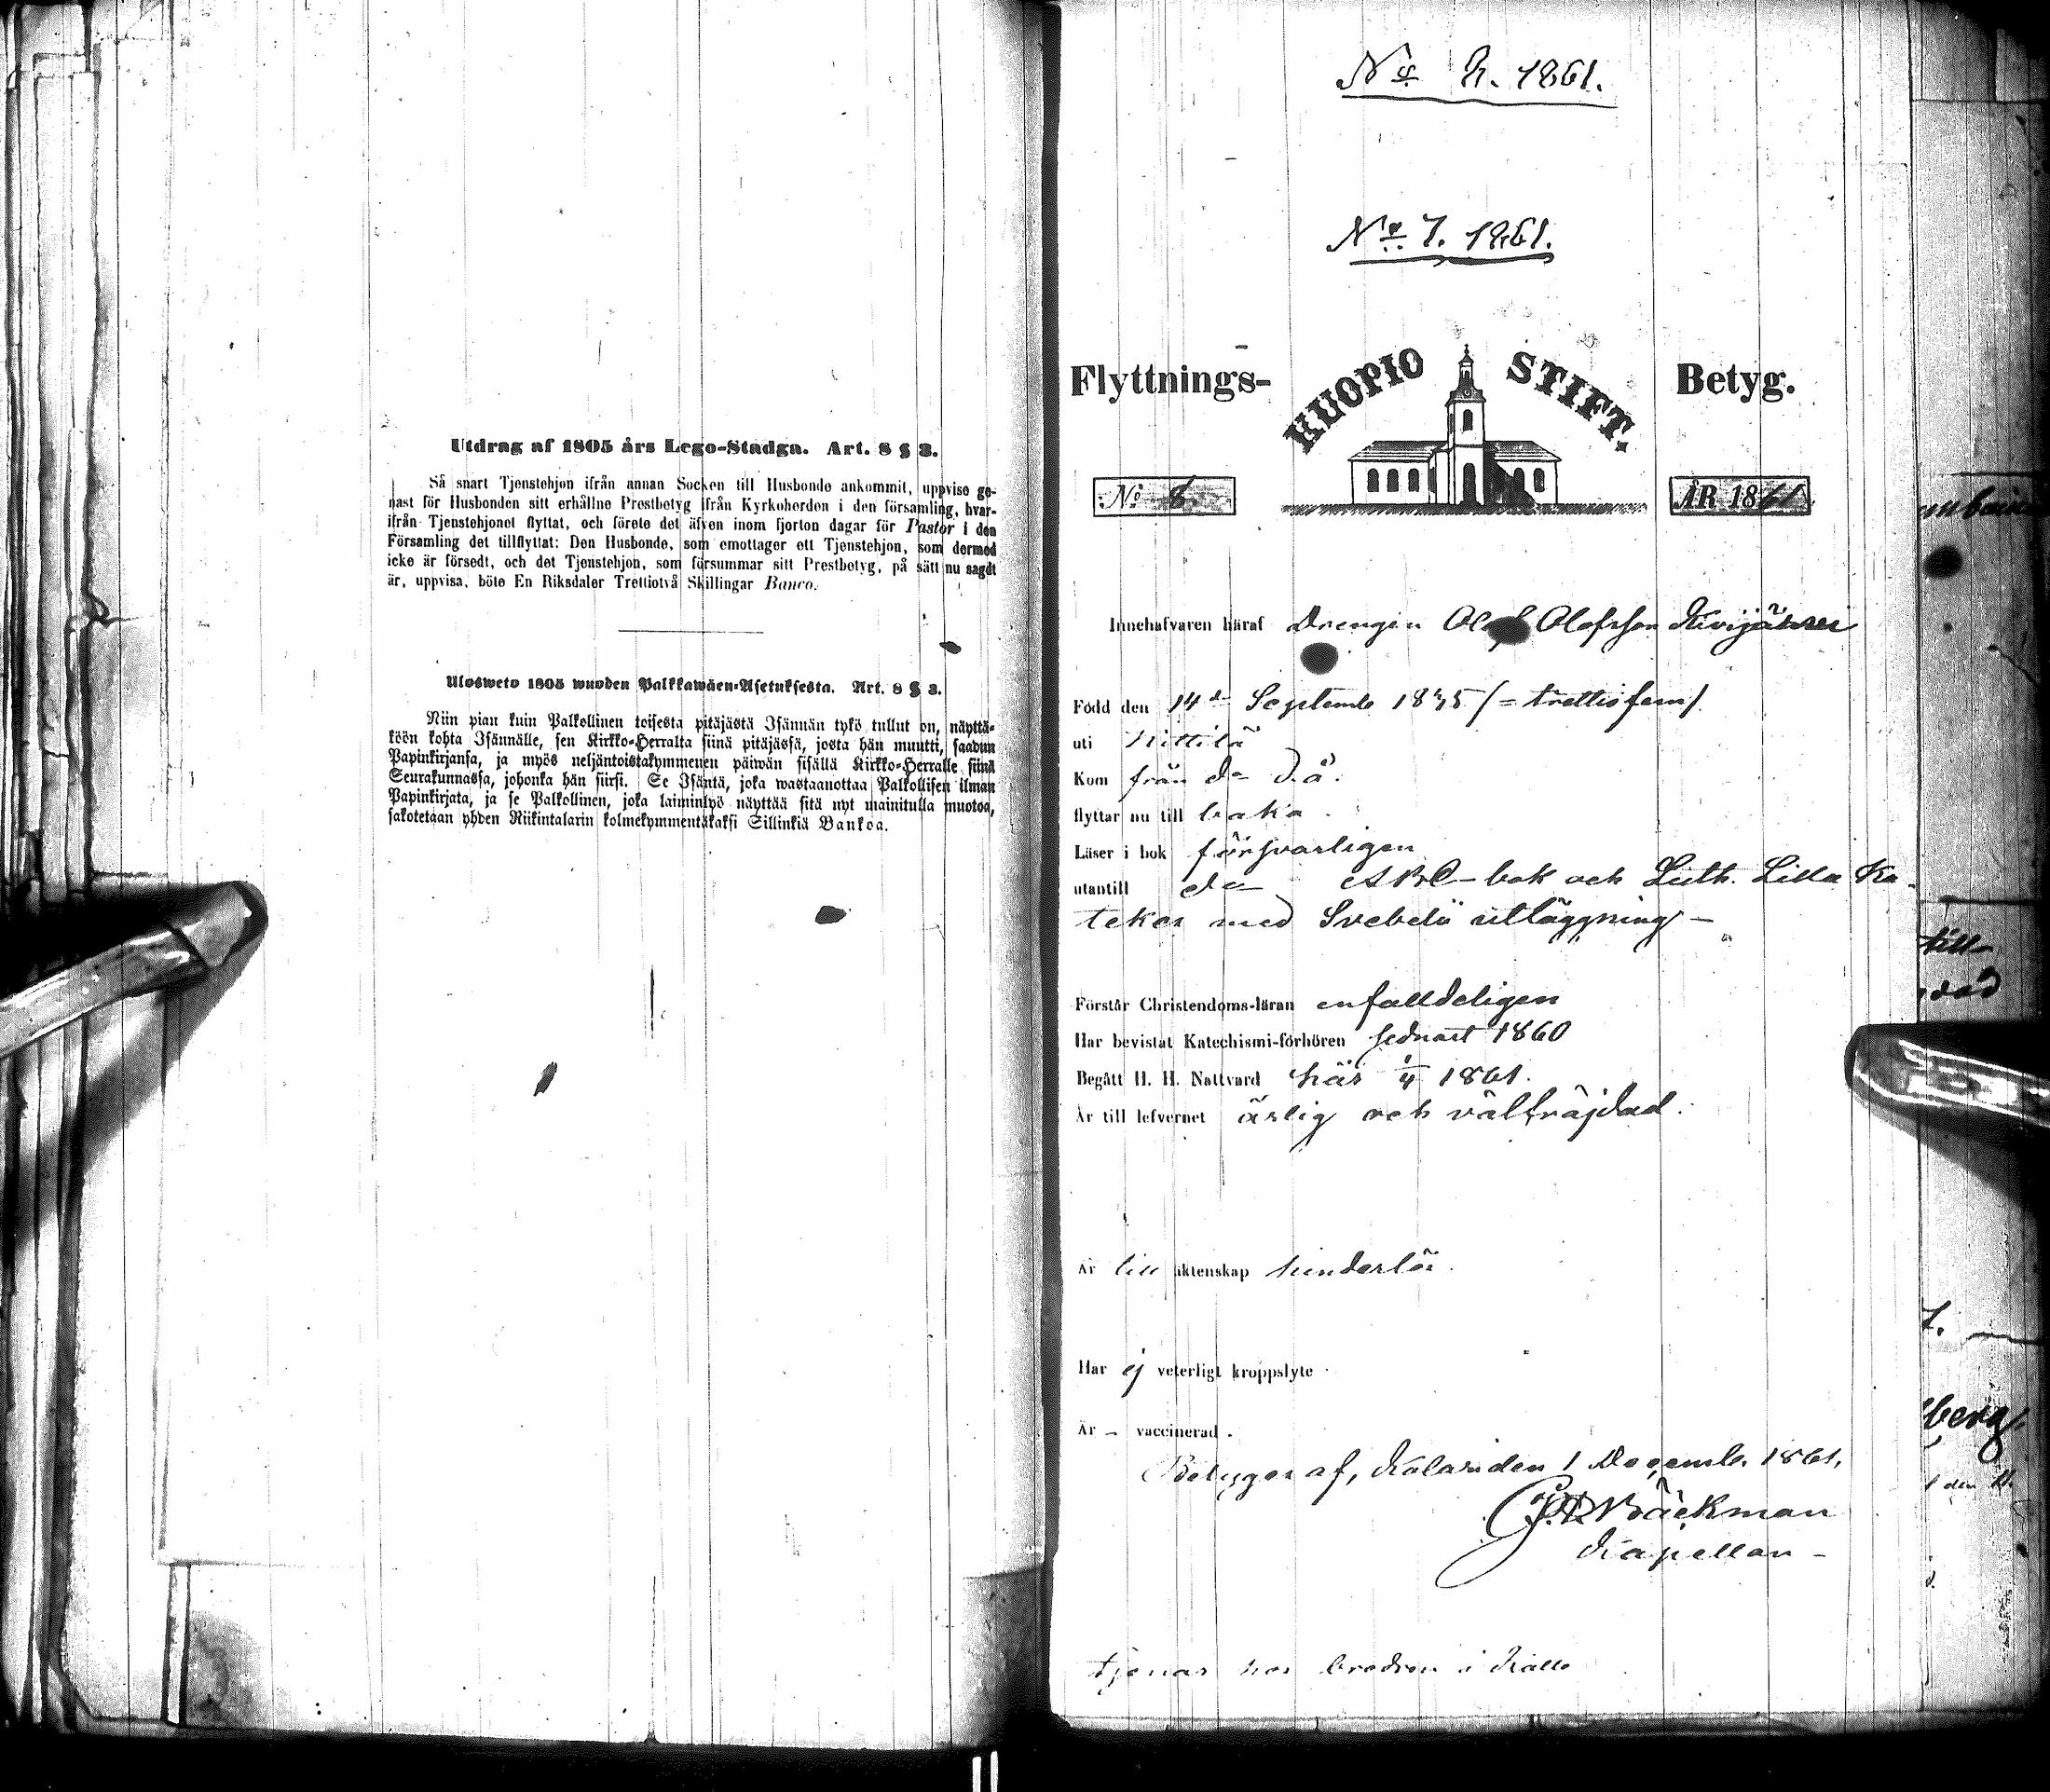 Utdrag af 1805 års Lego-Stadga. Art. 8 § 3.
Så snart Tjenstehjon ifrån annan Socken till Husbonde ankommit, uppvise ge-
nast för Husbonden sitt erhållne Prestbetyg ifrån Kyrkoherden i den församling, hvar-
ifrån Tjenstehjonet flyttat, och förete det äfven inom fjorton dagar för Pastor i den
Församling det tillflyttat: Den Husbonde, som emottager ett Tjenstehjon, som dermed
icke är försedt, och det Tjenstehjon, som försummar sitt Prestbetyg, på sätt nu sagdt
är, uppvisa, böte En Riksdaler Trettiotvå Skillingar Banco.
Ulosweto 1805 wuoden Palkkawäen-Asetuksesta. Art. 8 § 3.
Niin pian kuin Palkollinen toisesta pitäjästä Isännän tykö tullut on, näyttä-
köön kohta Isännälle, sen Kirkko-Herralta siinä pitäjässä, josta hän muutti, saadun
Papinkirjansa, ja myös neljäntoistakymmenen päiwän sisällä Kirkko-Herralle siinä
Seurakunnassa, johonka hän siirsi. Se Isäntä, joka wastaanottaa Palkollisen ilman
Papinkirjata, ja se Palkollinen, joka laiminlyö näyttää sitä nyt mainitulla muotoa,
sakotetaan yhden Riikintalarin kolmekymmentäkaksi Sillinkiä Bankoa.
No 1861.
No 7. 1861.
Flyttnings- KUOPIO STIFT. Betyg.
No 8. ÅR 1861
Innehafvaren häraf Drengen Olof Olofsson Kivijärvi
Född den 14de Septemb 1835 /= trettiofem/
uti Kittilä
Kom från do d.å.
flyttar nu till baka
Läser i bok försvarligen
utantill do ABC-bok och Luth. Lilla Ka-
teker med Svebelii utläggning -
Förstår Christendoms-läran enfalldeligen
Har bevistat Katechismi-förhören sednast 1860
Begått H. H. Nattvard här 1861.
Är till lefvernet ärlig och välfräjdad.
Är till äktenskap hinderlös.
Har ej veterligt kroppslyte
Är - vaccinerad.
Betygar af, Kolari den 1 Decemb. 1861.
Bäckman
Kapellan -
tjenar hos brodren i
till
berg